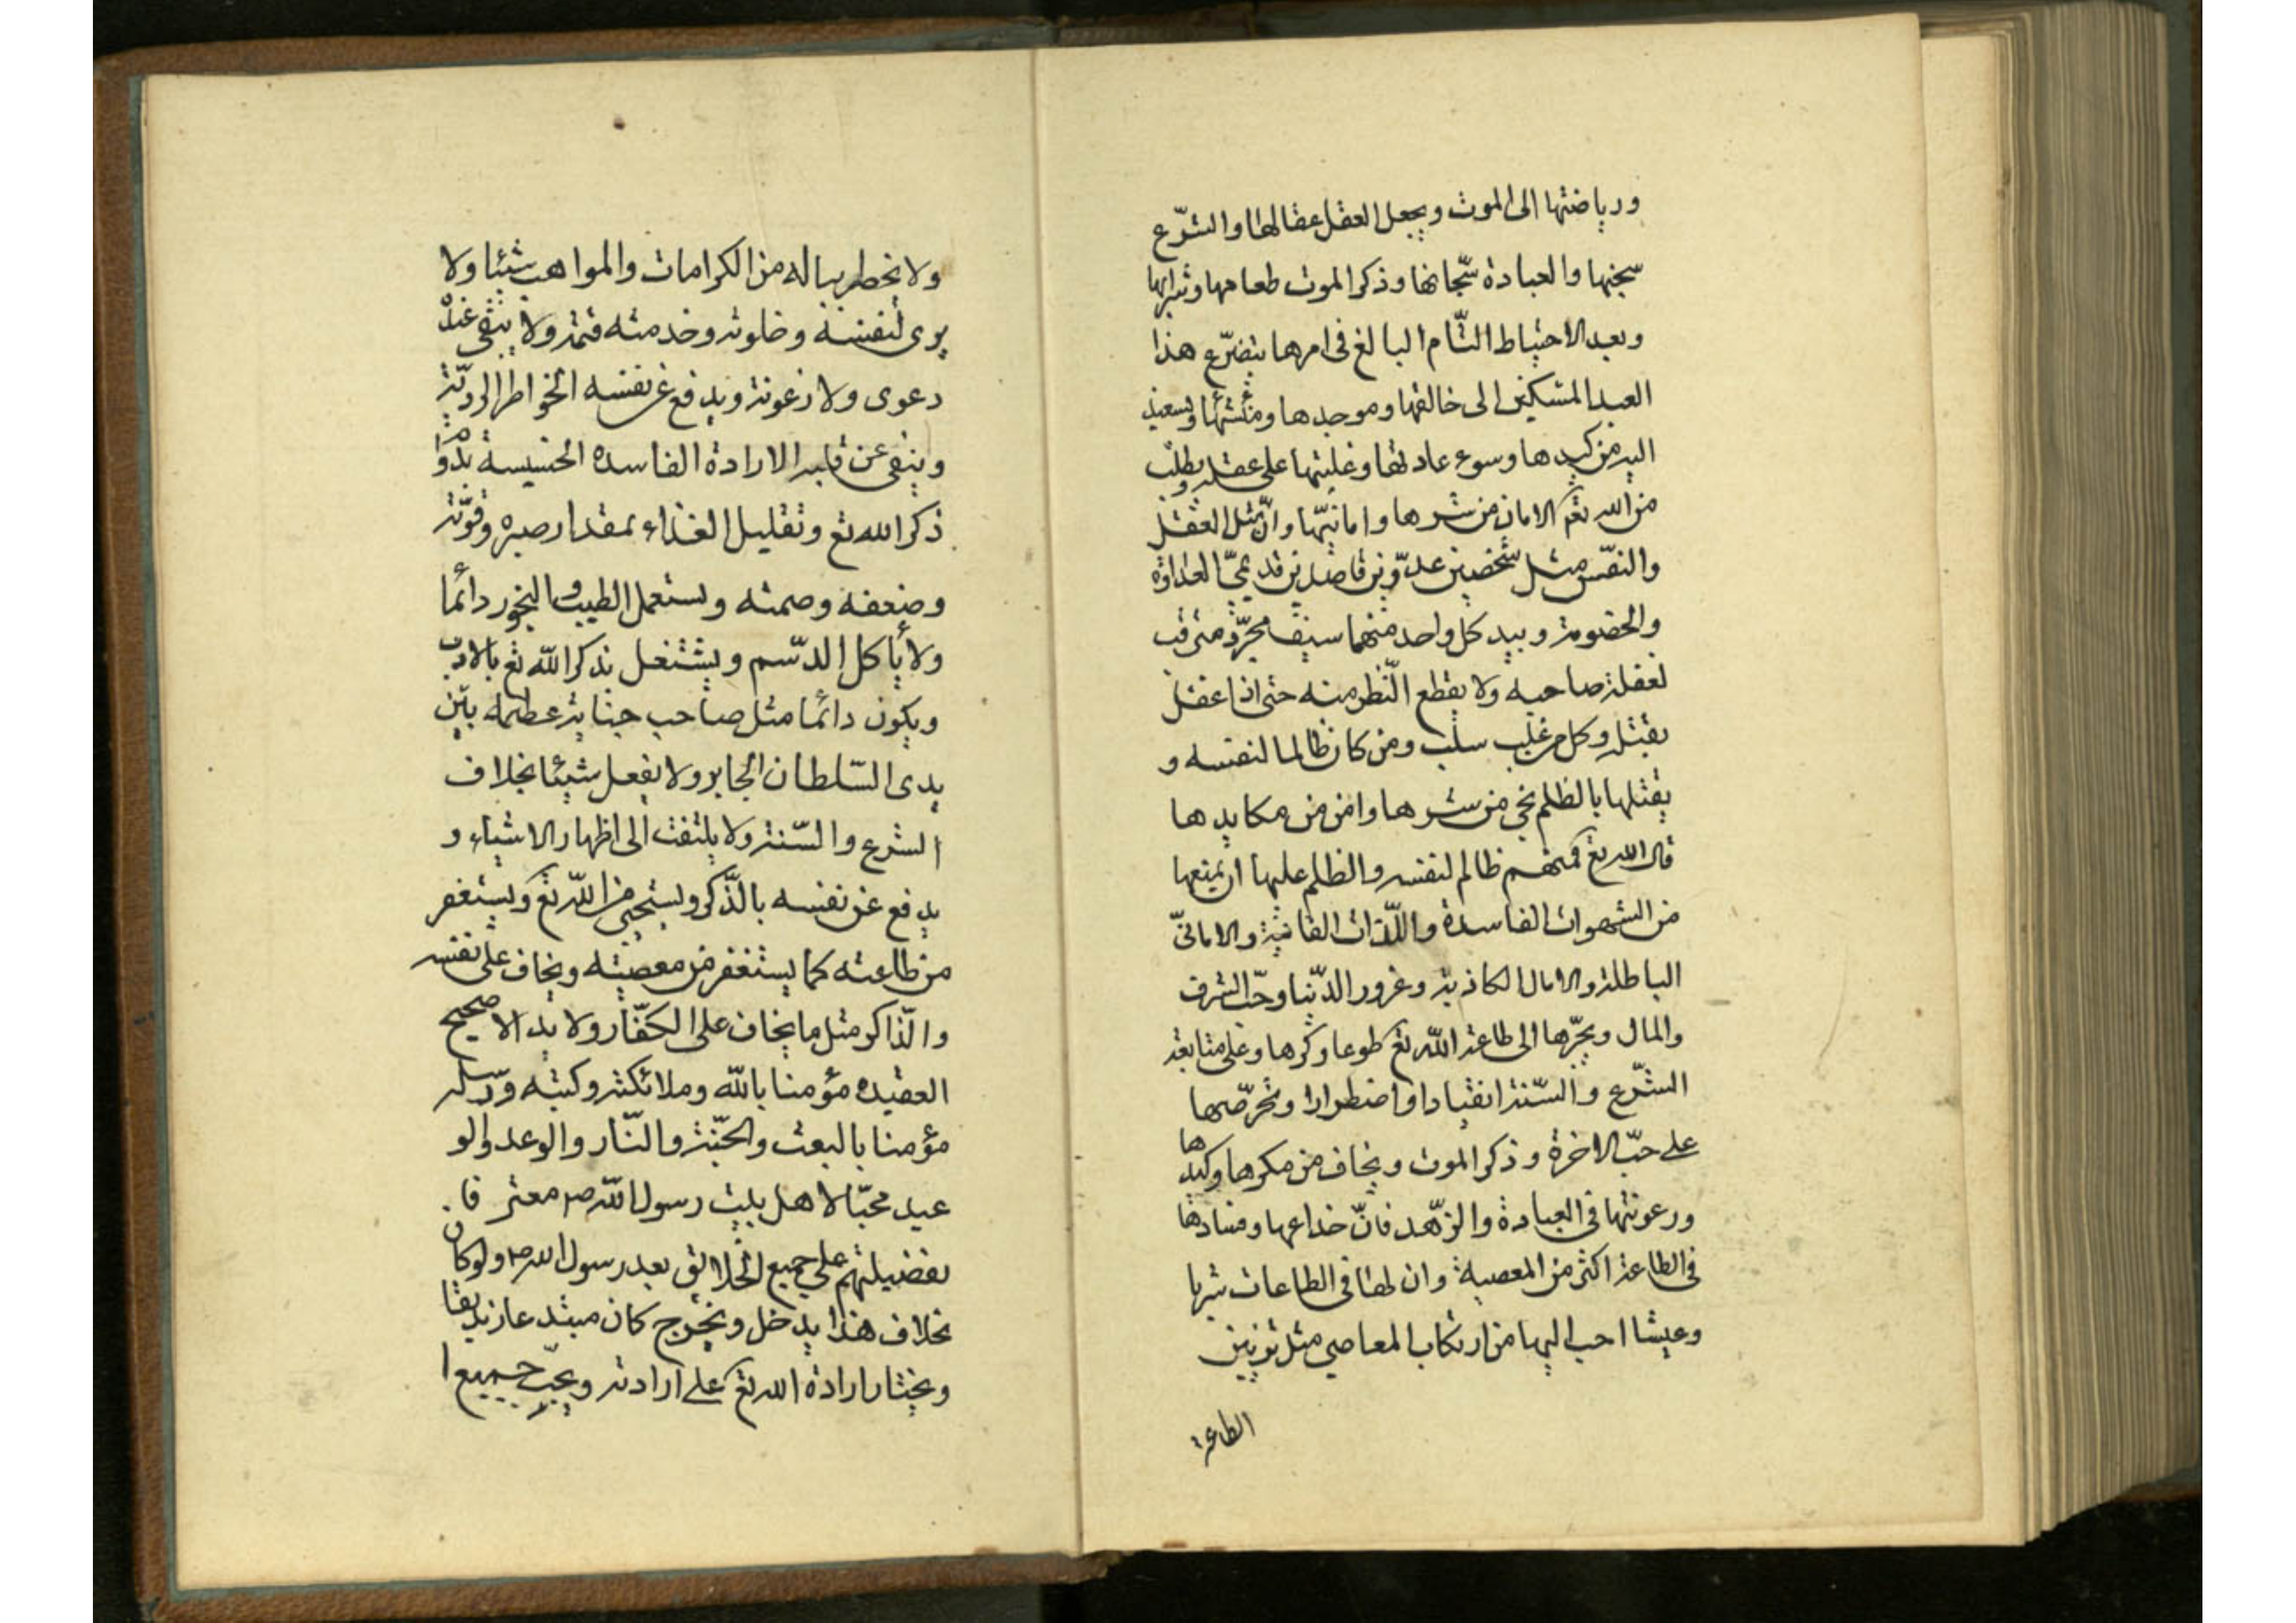 ورياضتها الى الموت ويجعل العقل عقالها والشّرع
سجنها والعبادة سّجانها وذكر الموت طعامها وشرابها
وبعد الاحتياط التّام البالغ فى امرها يتضرّع هذا
العبد المسكين الى خالقها وموجدها ومنشئها ويستعيذ
اليه من كيدها وسوء عادتها وغلبتها على عقله ويطلب
من الله تع الامان من شرها وامانيّها وانّ مثل العقل
والنفس مثل شخصين عدوّين قاصدين قديمىّ العداوة
والخصومة وبيد كل واحد منهما سيف مجرّد مترقب
لغفلة صاحبه ولا يقطع النّظر منه حتى اذا غفل
يقتله وكل من غلب سلب ومن كان ظالما لنفسه و
يقتلها بالظلم نجى من شرها وامن من مكايدها
قال الله تع فمنهم ظالم لنفسه والظلم عليها ان يمنعها
من الشهوات الفاسدة واللّذات الفانية والامانىّ
الباطلة والامال الكاذبة وغرور الدّنيا وحبّ الشرف
والمال ويجرّها الى طاعة اللّه تع طوعا وكرها وعلى متابعة
الشّرع والسّنة انقيادا واضطرارا وتحرّصها
على حبّ الاخرة وذكر الموت ويخاف من مكرها وكيدها
ورعونتها فى العبادة والزّهد فانّ خداعها وفسادها
فى الطاعة اكثر من المعصية وان لها فى الطاعات شربا
وعيشا احب اليها من ارتكاب المعاصى مثل تزيين
الطاعة
ولا يخطر بباله من الكرامات والمواهب شيئا ولا
يرى لنفسه وخلوته وخدمته قيمة ولا يبقى عنده
دعوى ولا رعونة ويدفع عن نفسه الخواطر الرديّة
وينفى عن قلبه الارادة الفاسده الخسيسة بدوام
ذكر الله تع وتقليل الغذاء بمقدار صبره وقوّته
وضعفه وصمته ويستعمل الطيب والبخور دائما
ولا يأكل الدّسم ويشتغل بذكر اللّه تع بالادب
ويكون دائما مثل صاحب جناية عظيمه بين
يدى السّلطان الجاير ولا يفعل شيئا بخلاف
الشرع والسّنة ولا يلتفت الى اظهار الاشياء و
يدفع عن نفسه بالذّكر ويستحيى من اللّه تع ويستغفر
من طاعته كما يستغفر من معصيته ويخاف على نفسه
والذّاكر مثل ما يخاف على الكفّار ولا بد الا صحيح
العقيده مؤمنا باللّه وملائكته وكتبه ورسله
مؤمنا بالبعث والجنّة والنّار والوعد والو
عيد محبّا لاهل بيت رسول اللّه ص معتر فا
بفضيلتهم على جميع الخلايق بعد رسول الله ص ولو كان
بخلاف هذا يدخل ويخرج كان مبتدعا زنديقا
ويختار ارادة الله تع على ارادته ويحبّ جميع ا